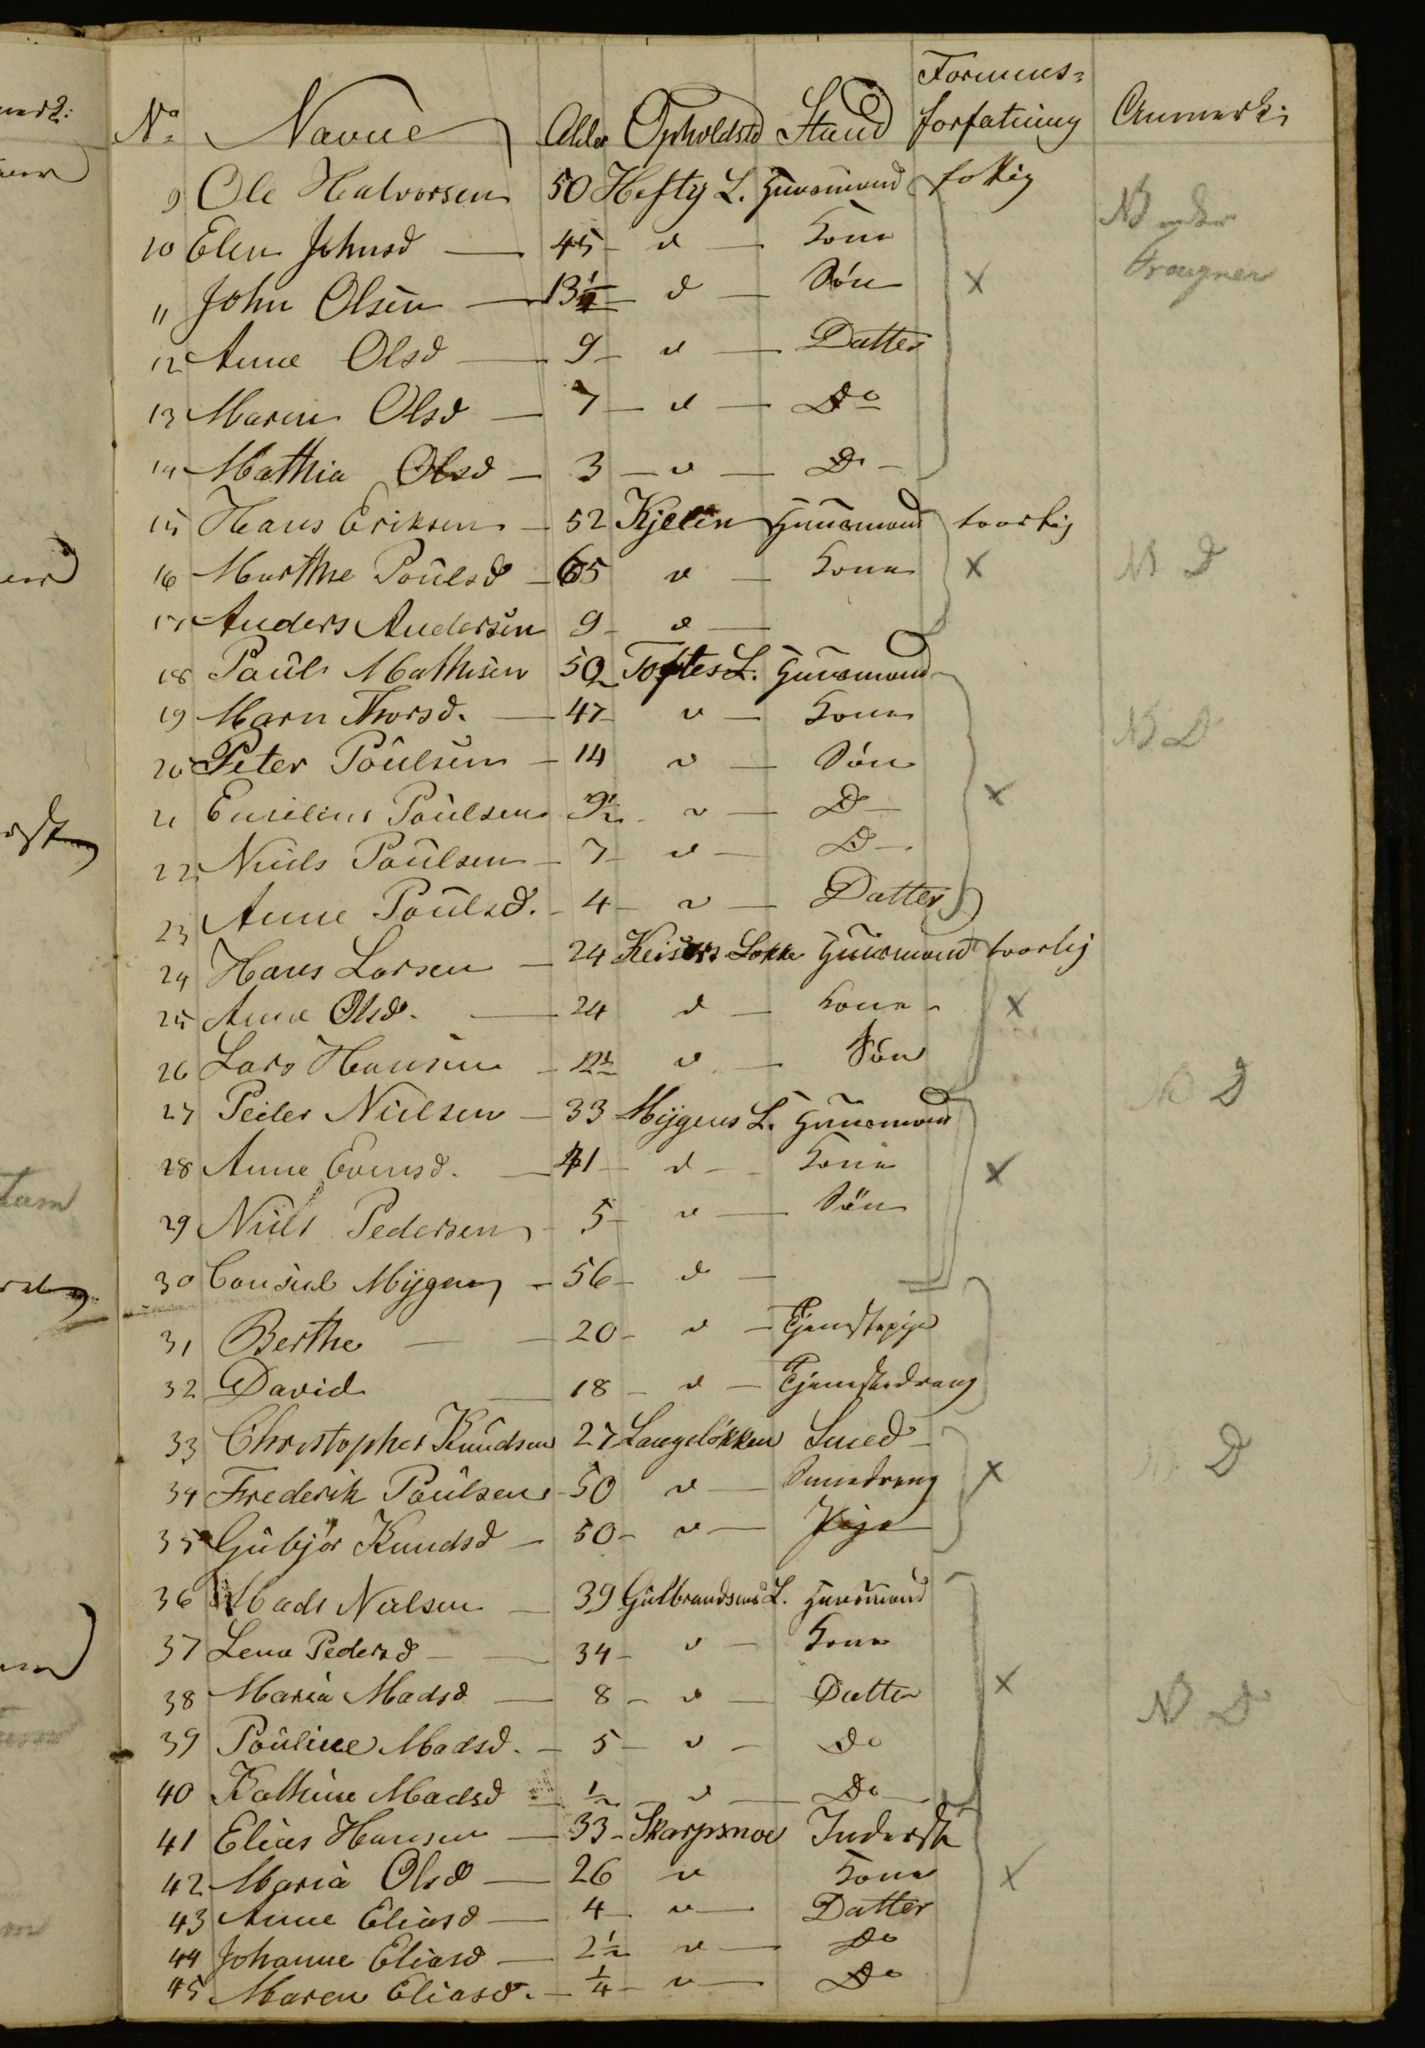 Formues-
No Navne Alder Opholdsted Stand forfatning Anmerk:
9 Ole Halvorsen 50 Hefty L. Huusmand fattig
10 Elen Johnsd — 45 — d — Kone
11 John Olsen — 13½ — d — Søn
12 Anne Olsd — 9 — d — Datter
13 Maren Olsd — 7 — d — Do
14 Mathia Olsd — 3 — d — D —
15 Hans Eriksen — 52 Kjelen Huusmand tvorlig
16 Marthe Poulsd — 65 d — Kone NB D
17 Anders Andersen 9 — d —
18 Poul Mathisen 50 Toftes L. Huusmand
19 Marn Thorsd. — 47 — d — Kone NB D
20 Peter Poulsen — 14 d — Søn
21 Emilius Poulsen 9½ d — D —
22 Niels Poulsen — 7 — d — D —
23 Anne Poulsd. — 4 — d — Datter
24 Hans Larsen — 24 Keisers Løkke Huusmand tvorlig
25 Anne Olsd. — 24 d — Kone
26 Lars Hansen — 1½ d — Søn
27 Peder Nielsen — 33 Mygens L. Huusmand NB D
28 Anne Evensd. — 41 — d — Kone
29 Niels Pedersen — 5 — d — Søn
30 Consul Mygen — 56 — d —
31 Berthe — 20 — d — Tjenestepige
32 David — 18 — d — Tjenestedreng
33 Christopher Knudsen 27 Langeløkken Smed — NB D
34 Frederik Poulsen — 50 d — Smedreng
35 Gubjør Knudsd — 50 — d — Pige
36 Mads Nielsen — 39 Gulbrandsens L. Huusmand
37 Lena Pedersd — 34 — d — Kone
38 Maria Madsd — 8 — d — Datter NB D
39 Pouline Madsd. — 5 — d — Do
40 Kathine Madsd — ½ — d — Do —
41 Elias Hansen — 33 — Skarpsnoe Inderst
42 Maria Olsd — 26 d Kone
43 Anne Eliasd — 4 — d — Datter
44 Johanne Eliasd — 2½ d — Do
45 Maren Eliasd. — ¼ — d — Do